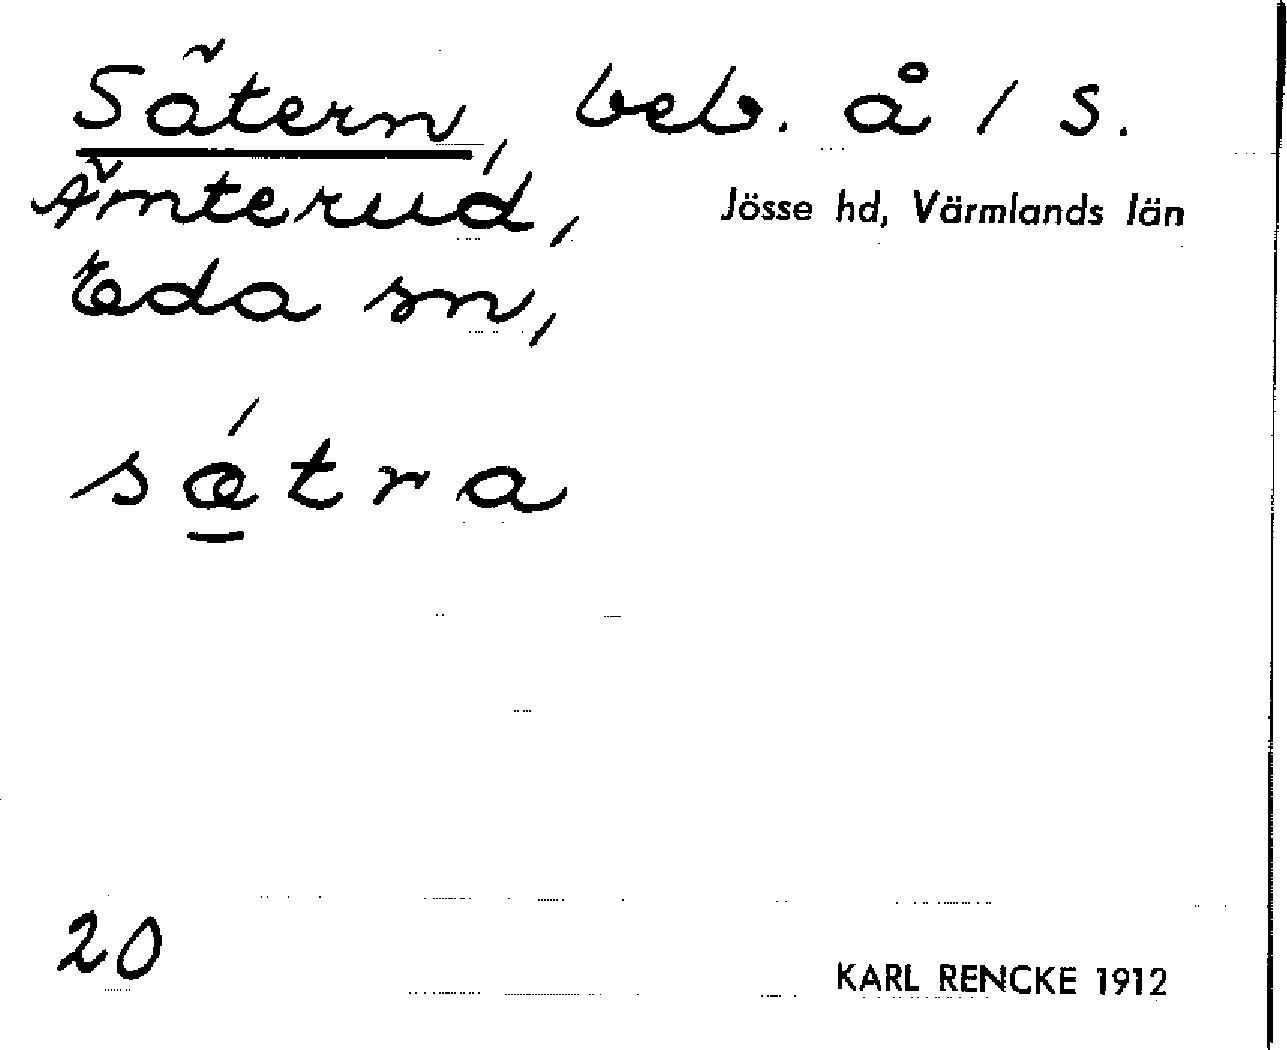 Sätern, beb. å 1 S.
Ämterud, Jösse hd, Värmlands län
Eda sn,
sǽtra
20
KARL RENCKE 1912